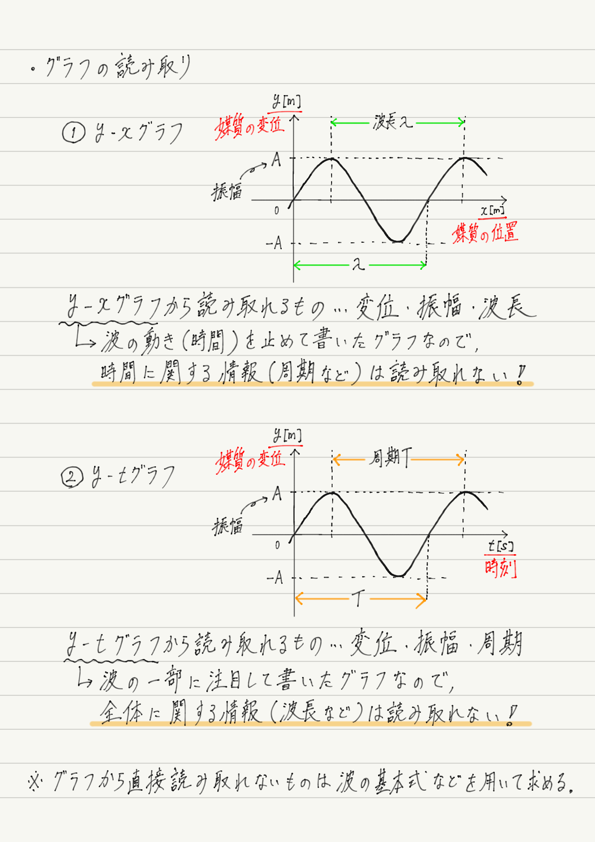 ・グラフの読み取り
① y-xグラフ
y[m]
媒質の変位
波長λ
A
振幅
0
x[m]
媒質の位置
-A
λ
y-xグラフから読み取れるもの…変位・振幅・波長
↳波の動き(時間)を止めて書いたグラフなので,
時間に関する情報(周期など)は読み取れない!
② y-tグラフ
y[m]
媒質の変位
周期T
A
振幅
0
t[s]
時刻
-A
T
y-tグラフから読み取れるもの…変位・振幅・周期
↳波の一部に注目して書いたグラフなので,
全体に関する情報(波長など)は読み取れない!
※グラフから直接読み取れないものは波の基本式などを用いて求める.